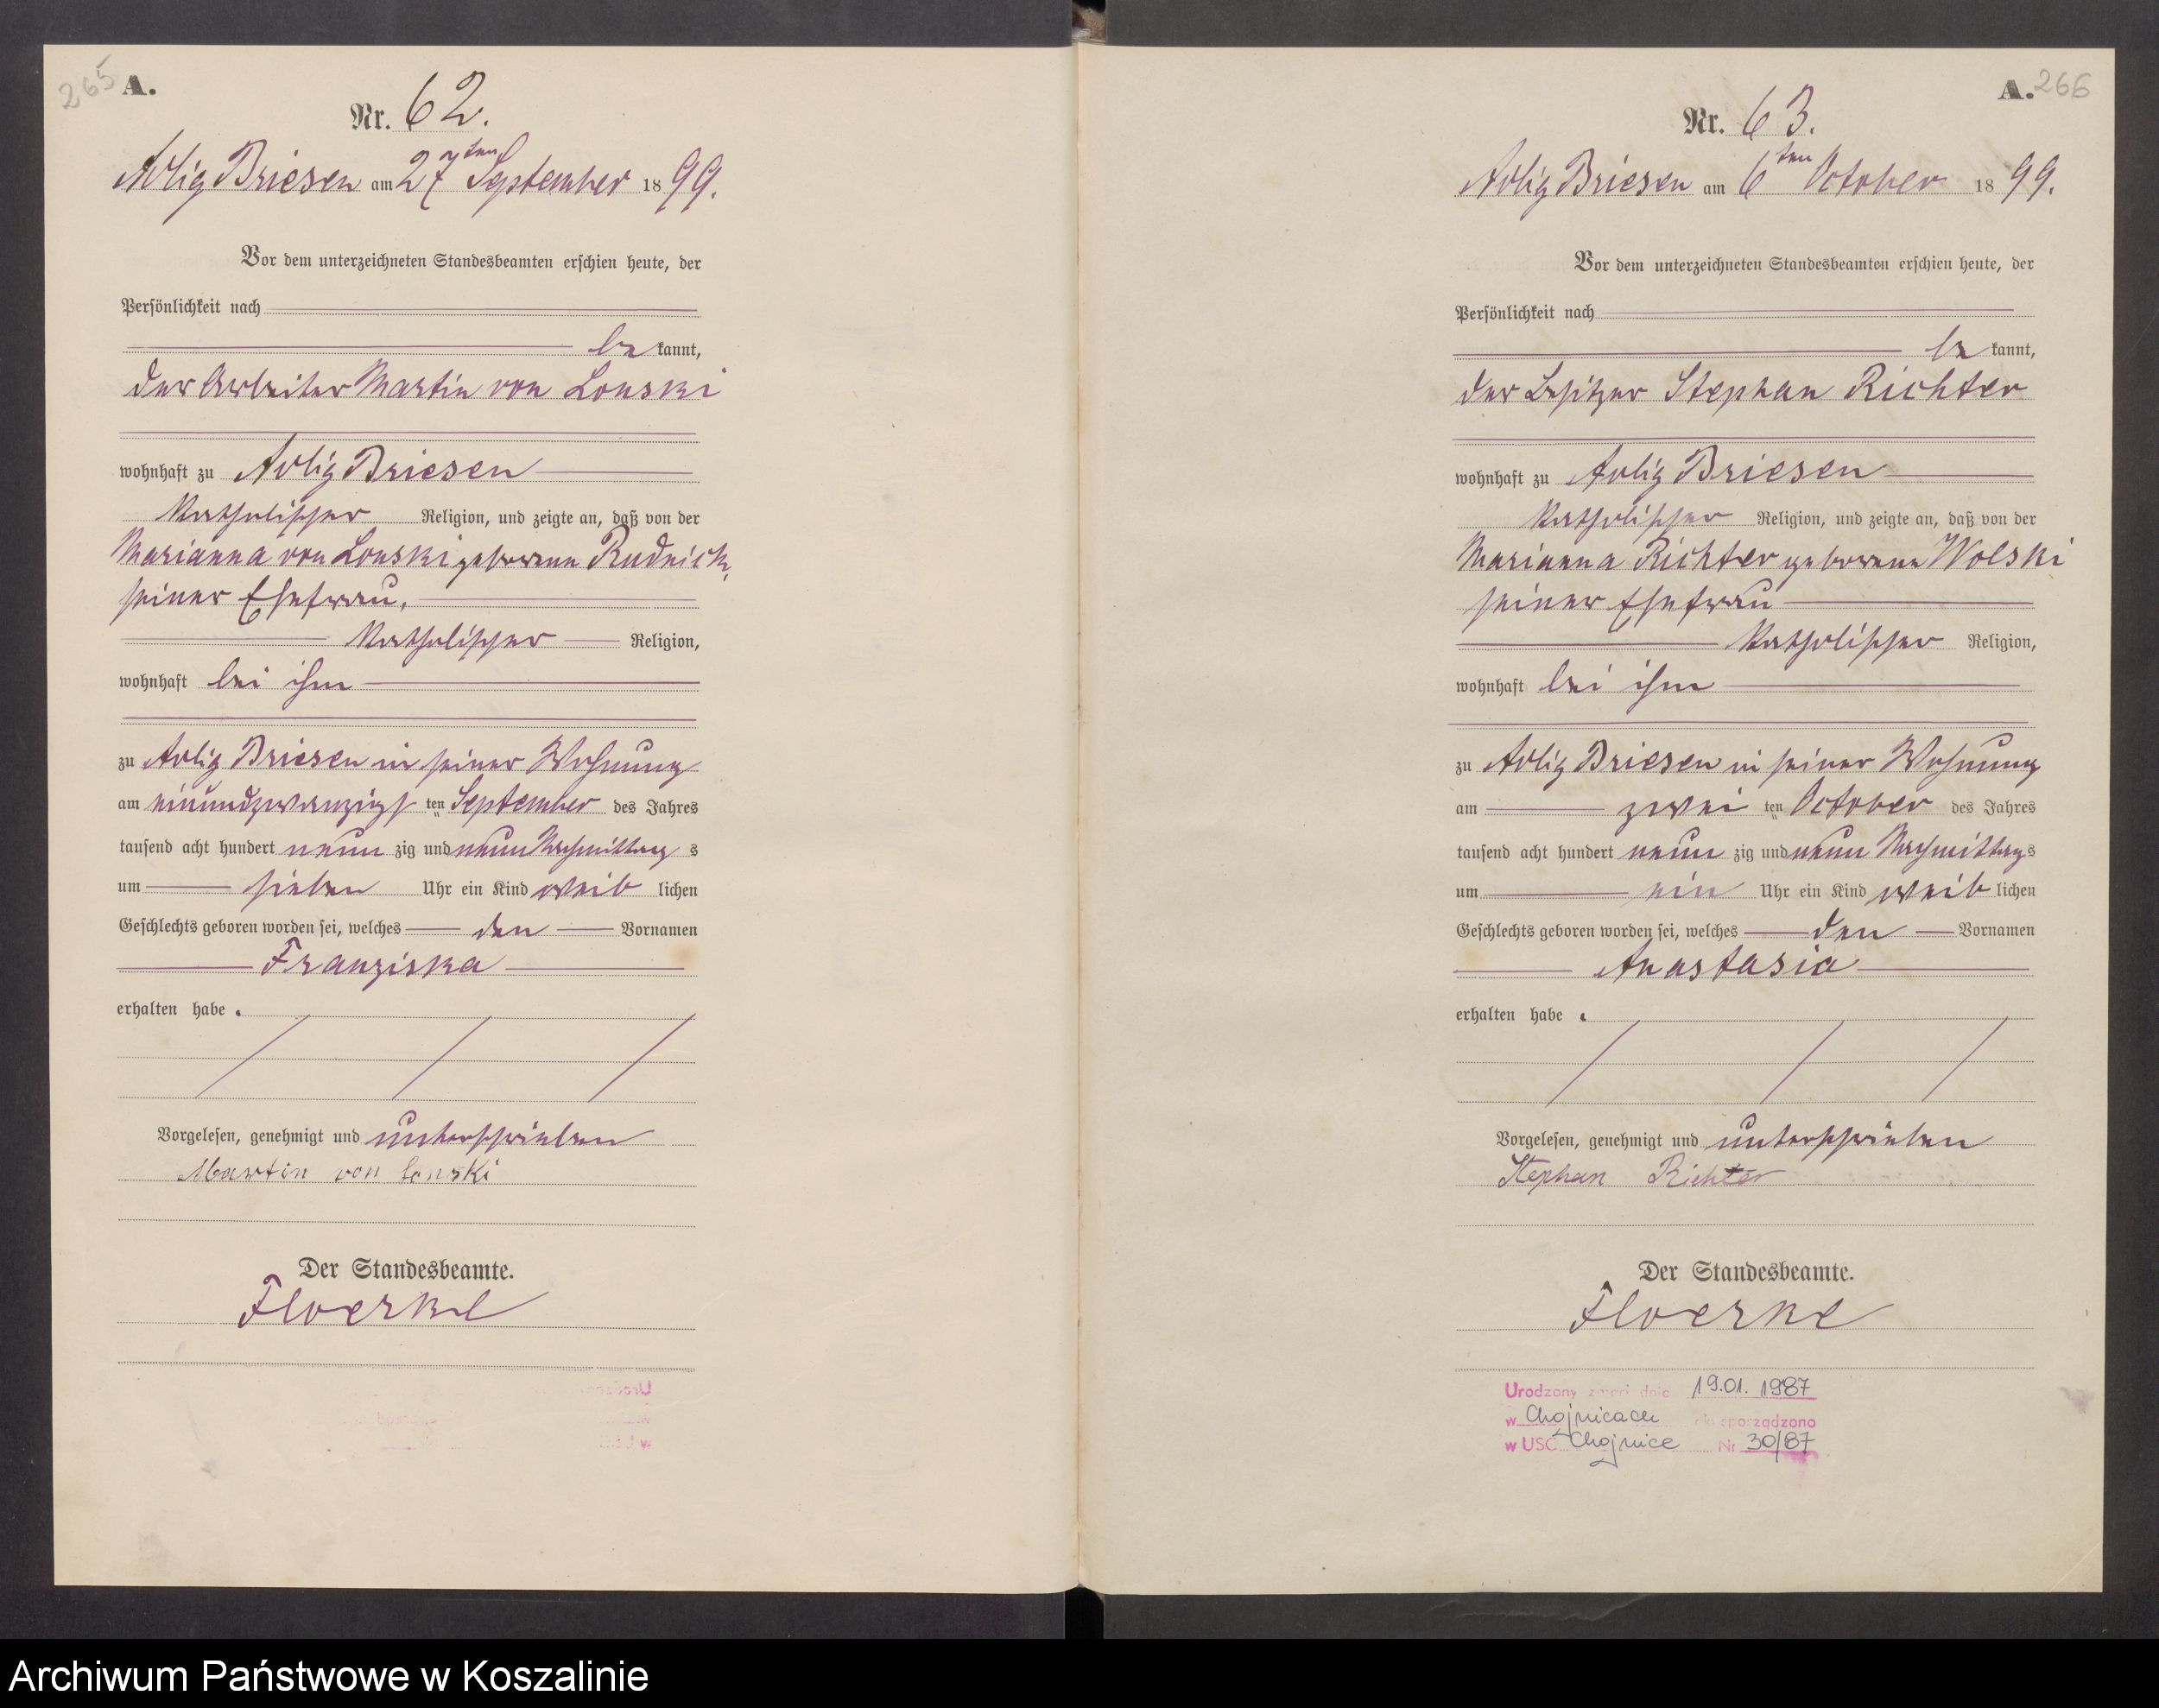 265 A.
Nr. 62.
Adlig Briesen am 27ten September 1899.
Vor dem unterzeichneten Standesbeamten erschien heute, der
Persönlichkeit nach
be kannt,
der Arbeiter Martin von Lonski
wohnhaft zu Adlig Briesen
katholischer Religion, und zeigte an, daß von der
Marianna von Lonski geborene Rudnick,
seiner Ehefrau,
katholischer Religion,
wohnhaft bei ihm
zu Adlig Briesen in seiner Wohnung
am einundzwanzigs ten September des Jahres
tausend acht hundert neun zig und neun Nachmittag s
um sieben Uhr ein Kind weib lichen
Geschlechts geboren worden sei, welches den Vornamen
Franziska
erhalten habe.
Vorgelesen, genehmigt und unterschrieben
Martin von Lonski
Der Standesbeamte.
Floerke
A. 266
Nr. 63.
Adlig Briesen am 6ten October 1899.
Vor dem unterzeichneten Standesbeamten erschien heute, der
Persönlichkeit nach
be kannt,
der Besitzer Stephan Richter
wohnhaft zu Adlig Briesen
katholischer Religion, und zeigte an, daß von der
Marianna Richter geborene Wolski
seiner Ehefrau
katholischer Religion,
wohnhaft bei ihm
zu Adlig Briesen in seiner Wohnung
am zwei ten October des Jahres
tausend acht hundert neun zig und neun Nachmittags
um ein Uhr ein Kind weib lichen
Geschlechts geboren worden sei, welches den Vornamen
Anastasia
erhalten habe.
Vorgelesen, genehmigt und unterschrieben
Stephan Richter
Der Standesbeamte.
Floerke
Urodzony zmarł dnia 19.01.1987
w Chojnicach sporządzono
w USC Chojnice Nr 30/87
Archiwum Państwowe w Koszalinie